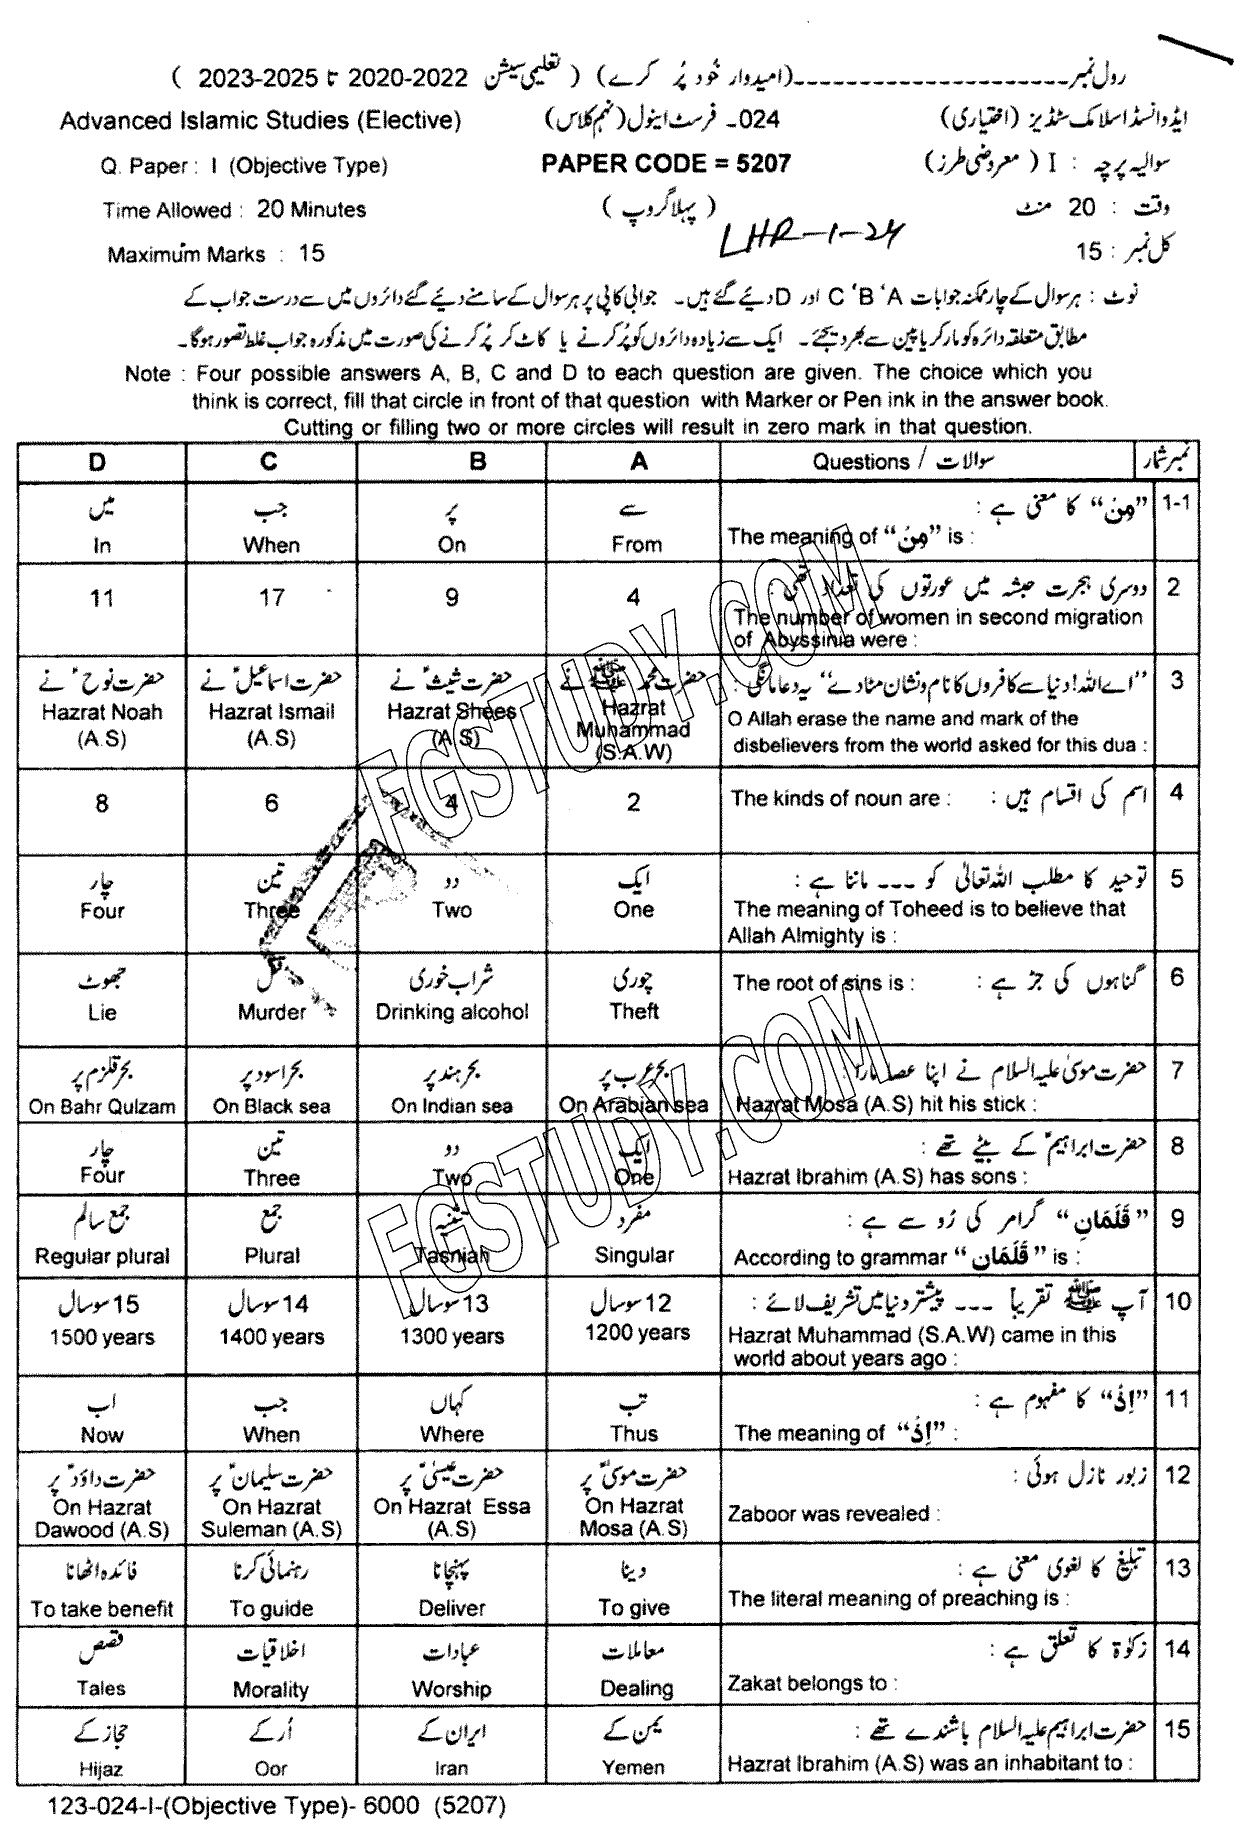 رول نمبر ـــــــــــــــــــــــ (امیدوار خُود پُر کرے) ( تعلیمی سیشن 2022-2020 تا 2025-2023 )
Advanced Islamic Studies (Elective) 024۔ فرسٹ اینول (نہم کلاس) ایڈوانسڈ اسلامک سٹڈیز (اختیاری)
Q. Paper : I (Objective Type) PAPER CODE = 5207 سوالیہ پرچہ : I ( معروضی طرز)
Time Allowed : 20 Minutes (پہلا گروپ) وقت : 20 منٹ
LHR-1-24
Maximum Marks : 15 کل نمبر : 15
نوٹ : ہر سوال کے چار ممکنہ جوابات A ' B ' C اور D دئیے گئے ہیں۔ جوابی کاپی پر ہر سوال کے سامنے دئیے گئے دائروں میں سے درست جواب کے
مطابق متعلقہ دائرہ کو مارکر یا پین سے بھر دیجئے۔ ایک سے زیادہ دائروں کو پُر کرنے یا کاٹ کر پُر کرنے کی صورت میں مذکورہ جواب غلط تصور ہوگا۔
Note : Four possible answers A, B, C and D to each question are given. The choice which you
think is correct, fill that circle in front of that question with Marker or Pen ink in the answer book.
Cutting or filling two or more circles will result in zero mark in that question.
D C B A Questions / سوالات نمبر شمار
1-1 ”مِنْ“ کا معنی ہے : سے پر جب میں
The meaning of “مِنْ” is : From On When In
2 دوسری ہجرت حبشہ میں عورتوں کی تعداد تھی : 4 9 17 11
The number of women in second migration
of Abyssinia were :
3 ”اے اللہ! دنیا سے کافروں کا نام و نشان مٹا دے“ یہ دعا مانگی : حضرت محمد ﷺ نے حضرت شیث ؑ نے حضرت اسماعیل ؑ نے حضرت نوح ؑ نے
O Allah erase the name and mark of the Hazrat Muhammad (S.A.W) Hazrat Shees (A.S) Hazrat Ismail (A.S) Hazrat Noah (A.S)
disbelievers from the world asked for this dua :
4 اسم کی اقسام ہیں : The kinds of noun are : 2 4 6 8
5 توحید کا مطلب اللہ تعالیٰ کو ۔۔۔ ماننا ہے : ایک دو تین چار
The meaning of Toheed is to believe that One Two Three Four
Allah Almighty is :
6 گناہوں کی جڑ ہے : The root of sins is : چوری شراب خوری قتل جھوٹ
Theft Drinking alcohol Murder Lie
7 حضرت موسیٰ علیہ السلام نے اپنا عصا مارا : بحر عرب پر بحر ہند پر بحر اسود پر بحر قلزم پر
Hazrat Mosa (A.S) hit his stick : On Arabian sea On Indian sea On Black sea On Bahr Qulzam
8 حضرت ابراہیم ؑ کے بیٹے تھے : ایک دو تین چار
Hazrat Ibrahim (A.S) has sons : One Two Three Four
9 ”قَلَمَانِ“ گرامر کی رُو سے ہے : مفرد تثنیہ جمع جمع سالم
According to grammar “قَلَمَان” is : Singular Tasniah Plural Regular plural
10 آپ ﷺ تقریباً ۔۔۔ پیشتر دنیا میں تشریف لائے : 12 سو سال 13 سو سال 14 سو سال 15 سو سال
Hazrat Muhammad (S.A.W) came in this 1200 years 1300 years 1400 years 1500 years
world about years ago :
11 ”اِذْ“ کا مفہوم ہے : تب کہاں جب اب
The meaning of “اِذْ” : Thus Where When Now
12 زبور نازل ہوئی : حضرت موسیٰ ؑ پر حضرت عیسیٰ ؑ پر حضرت سلیمان ؑ پر حضرت داؤد ؑ پر
Zaboor was revealed : On Hazrat Mosa (A.S) On Hazrat Essa (A.S) On Hazrat Suleman (A.S) On Hazrat Dawood (A.S)
13 تبلیغ کا لغوی معنی ہے : دینا پہنچانا رہنمائی کرنا فائدہ اٹھانا
The literal meaning of preaching is : To give Deliver To guide To take benefit
14 زکوٰۃ کا تعلق ہے : معاملات عبادات اخلاقیات قصص
Zakat belongs to : Dealing Worship Morality Tales
15 حضرت ابراہیم علیہ السلام باشندے تھے : یمن کے ایران کے اُر کے حجاز کے
Hazrat Ibrahim (A.S) was an inhabitant to : Yemen Iran Oor Hijaz
123-024-I-(Objective Type)- 6000 (5207)
FGSTUDY.COM
FGSTUDY.COM